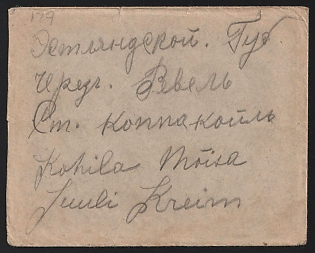 179
Эстляндской. Губ.
через. Ревель
Ст. коппакойль
Kohila Mõisa
Juuli Kreim